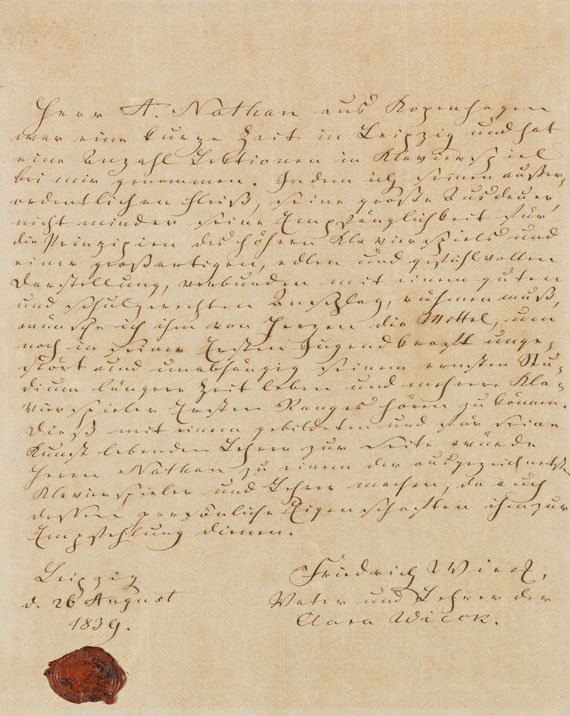 Herr A. Nathan aus Kopenhagen
war eine kurze Zeit in Leipzig und hat
eine Anzahl Lektionen in Klavierspiel
bei mir genommen. Indem ich seinen außer-
ordentlichen Fleiß, seine große Ausdauer,
nicht minder seine Empfänglichkeit für
die Prinzipien des höhern Klavierspiels und
einer großartigen, edlen und gefühlvollen
Darstellung, verbunden mit einem guten
und schulgerechten Anschlag, rühmen muß,
wünsche ich ihm von Herzen die Mittel, um
noch in seiner Ersten Jugendkraft unge-
stört und unabhängig seinem ernsten Stu-
dium längere Zeit leben und mehrere Kla-
vierspieler Ersten Ranges hören zu können.
Dieß mit einem gebildeten und für seine
Kunst lebenden Lehrer zur Seite würde
Herrn Nathan zu einem der ausgezeichnetsten
Klavierspieler und Lehrer machen, da auch
dessen persönliche Eigenschaften ihm zur
Empfehlung dienen.
Leipzig
d. 26 August
1839.
Friedrich Wieck,
Vater und Lehrer der
Clara Wieck.